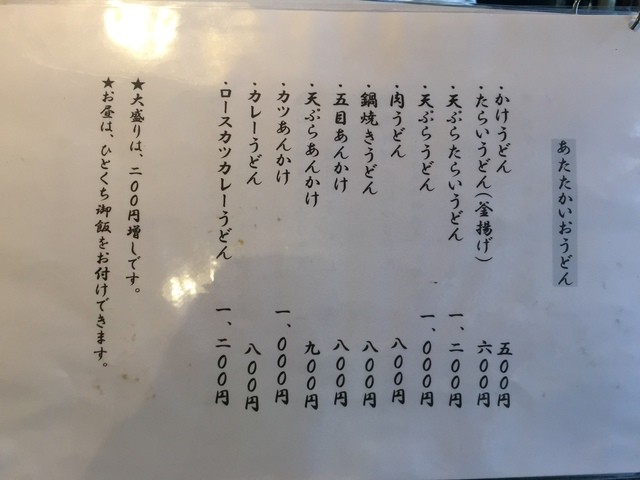 あたたかいおうどん
・かけうどん 五〇〇円
・たらいうどん(釜揚げ) 六〇〇円
・天ぷらたらいうどん 一、二〇〇円
・天ぷらうどん 一、〇〇〇円
・肉うどん 八〇〇円
・鍋焼きうどん 八〇〇円
・五目あんかけ 八〇〇円
・天ぷらあんかけ 九〇〇円
・カツあんかけ 一、〇〇〇円
・カレーうどん 八〇〇円
・ロースカツカレーうどん 一、二〇〇円
★大盛りは、二〇〇円増しです。
★お昼は、ひとくち御飯をお付けできます。